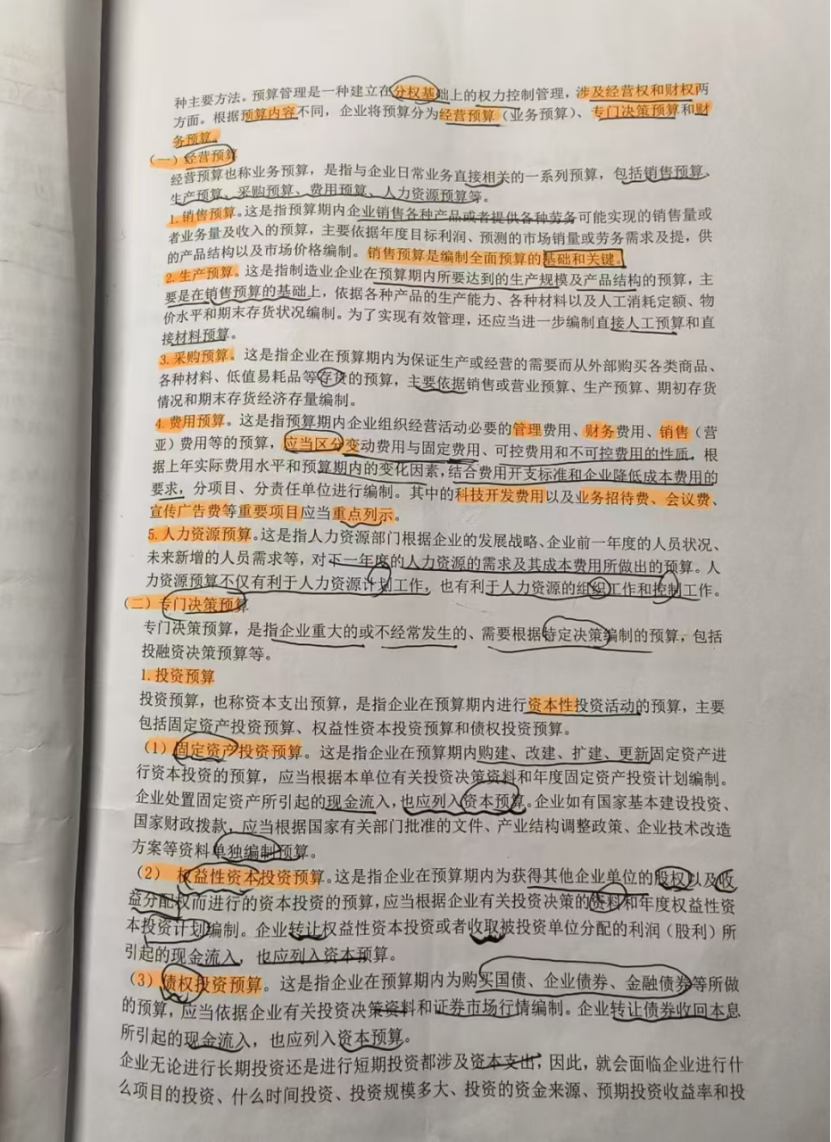 种主要方法。预算管理是一种建立在分权基础上的权力控制管理，涉及经营权和财权两
方面。根据预算内容不同，企业将预算分为经营预算（业务预算）、专门决策预算和财
务预算。
（一）经营预算
经营预算也称业务预算，是指与企业日常业务直接相关的一系列预算，包括销售预算、
生产预算、采购预算、费用预算、人力资源预算等。
1.销售预算。这是指预算期内企业销售各种产品或者提供各种劳务可能实现的销售量或
者业务量及收入的预算，主要依据年度目标利润、预测的市场销量或劳务需求及提，供
的产品结构以及市场价格编制。销售预算是编制全面预算的基础和关键。
2.生产预算。这是指制造业企业在预算期内所要达到的生产规模及产品结构的预算，主
要是在销售预算的基础上，依据各种产品的生产能力、各种材料以及人工消耗定额、物
价水平和期末存货状况编制。为了实现有效管理，还应当进一步编制直接人工预算和直
接材料预算。
3.采购预算。这是指企业在预算期内为保证生产或经营的需要而从外部购买各类商品、
各种材料、低值易耗品等存货的预算，主要依据销售或营业预算、生产预算、期初存货
情况和期末存货经济存量编制。
4.费用预算。这是指预算期内企业组织经营活动必要的管理费用、财务费用、销售（营
亚）费用等的预算，应当区分变动费用与固定费用、可控费用和不可控费用的性质，根
据上年实际费用水平和预算期内的变化因素，结合费用开支标准和企业降低成本费用的
要求，分项目、分责任单位进行编制。其中的科技开发费用以及业务招待费、会议费、
宣传广告费等重要项目应当重点列示。
5.人力资源预算。这是指人力资源部门根据企业的发展战略、企业前一年度的人员状况、
未来新增的人员需求等，对下一年度的人力资源的需求及其成本费用所做出的预算。人
力资源预算不仅有利于人力资源计划工作，也有利于人力资源的组织工作和控制工作。
（二）专门决策预算
专门决策预算，是指企业重大的或不经常发生的、需要根据特定决策编制的预算，包括
投融资决策预算等。
1.投资预算
投资预算，也称资本支出预算，是指企业在预算期内进行资本性投资活动的预算，主要
包括固定资产投资预算、权益性资本投资预算和债权投资预算。
（1）固定资产投资预算。这是指企业在预算期内购建、改建、扩建、更新固定资产进
行资本投资的预算，应当根据本单位有关投资决策资料和年度固定资产投资计划编制。
企业处置固定资产所引起的现金流入，也应列入资本预算。企业如有国家基本建设投资、
国家财政拨款，应当根据国家有关部门批准的文件、产业结构调整政策、企业技术改造
方案等资料单独编制预算。
（2）权益性资本投资预算。这是指企业在预算期内为获得其他企业单位的股权以及收
益分配权而进行的资本投资的预算，应当根据企业有关投资决策的资料和年度权益性资
本投资计划编制。企业转让权益性资本投资或者收取被投资单位分配的利润（股利）所
引起的现金流入，也应列入资本预算。
（3）债权投资预算。这是指企业在预算期内为购买国债、企业债券、金融债券等所做
的预算，应当依据企业有关投资决策资料和证券市场行情编制。企业转让债券收回本息
所引起的现金流入，也应列入资本预算。
企业无论进行长期投资还是进行短期投资都涉及资本支出，因此，就会面临企业进行什
么项目的投资、什么时间投资、投资规模多大、投资的资金来源、预期投资收益率和投